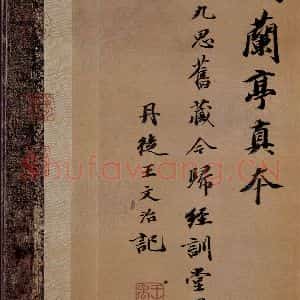 蘭亭真本
九思舊藏今歸經訓堂
丹徒王文治記
Shufawang.CN